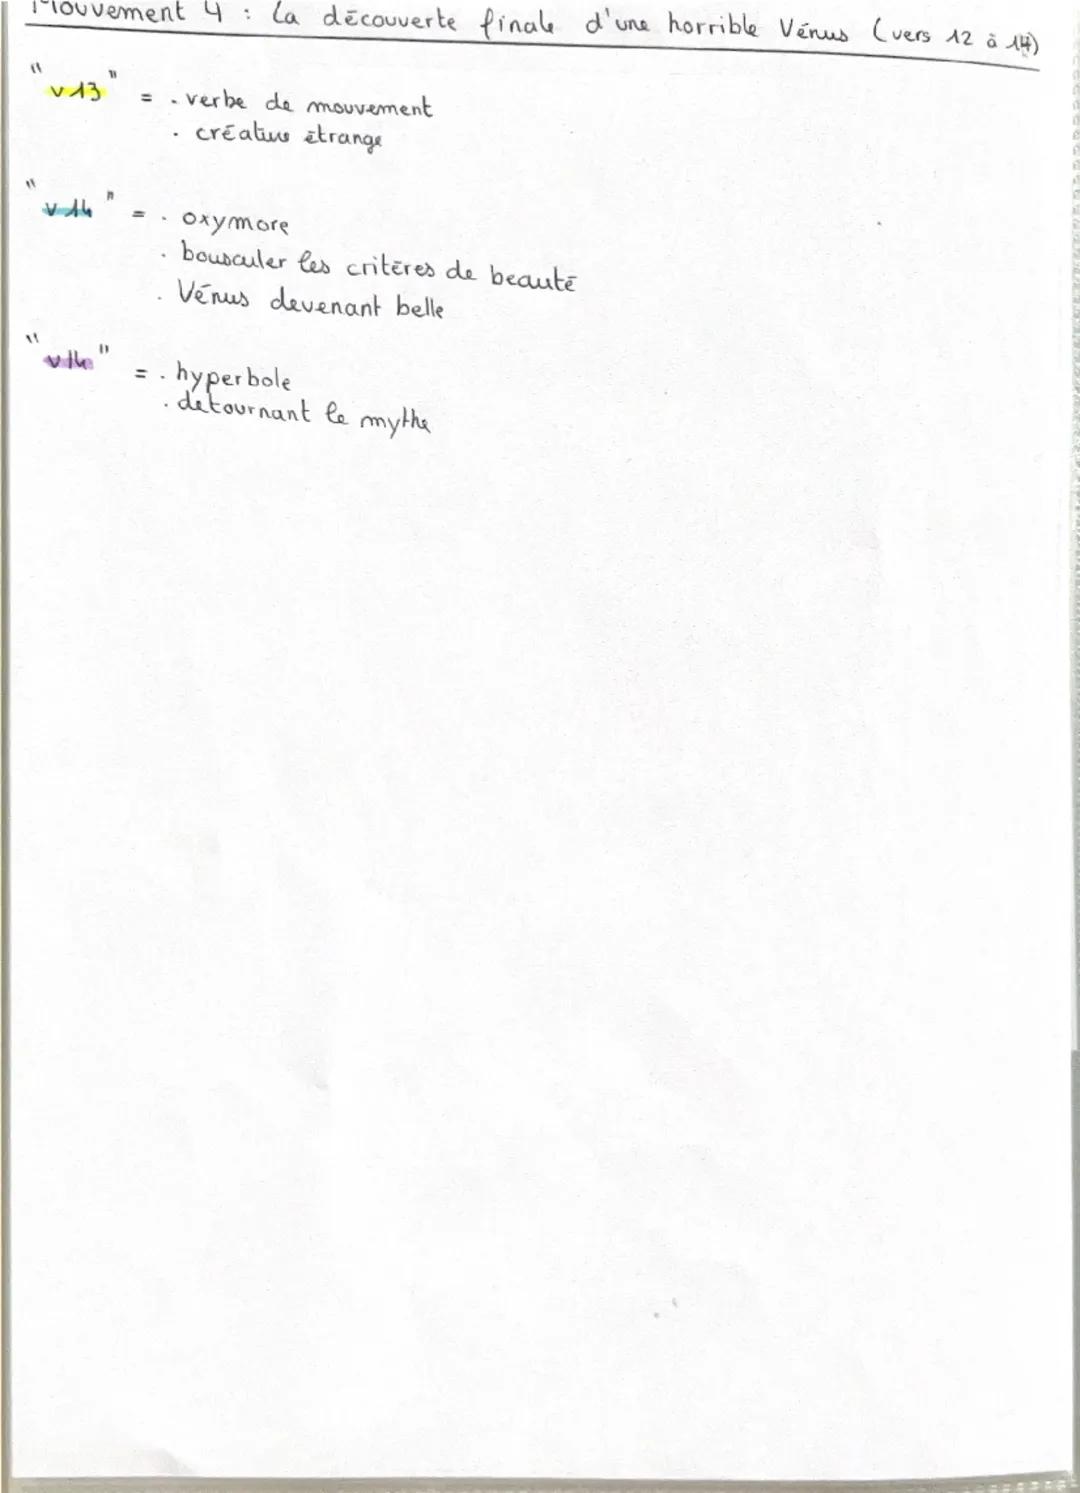 Mouvement 4 : La découverte finale d'une horrible Vénus (vers 12 à 14)
"v13" = . verbe de mouvement
. créature étrange
"v14" = . oxymore
. bousculer les critères de beauté
. Vénus devenant belle
"v14" = . hyperbole
. détournant le mythe